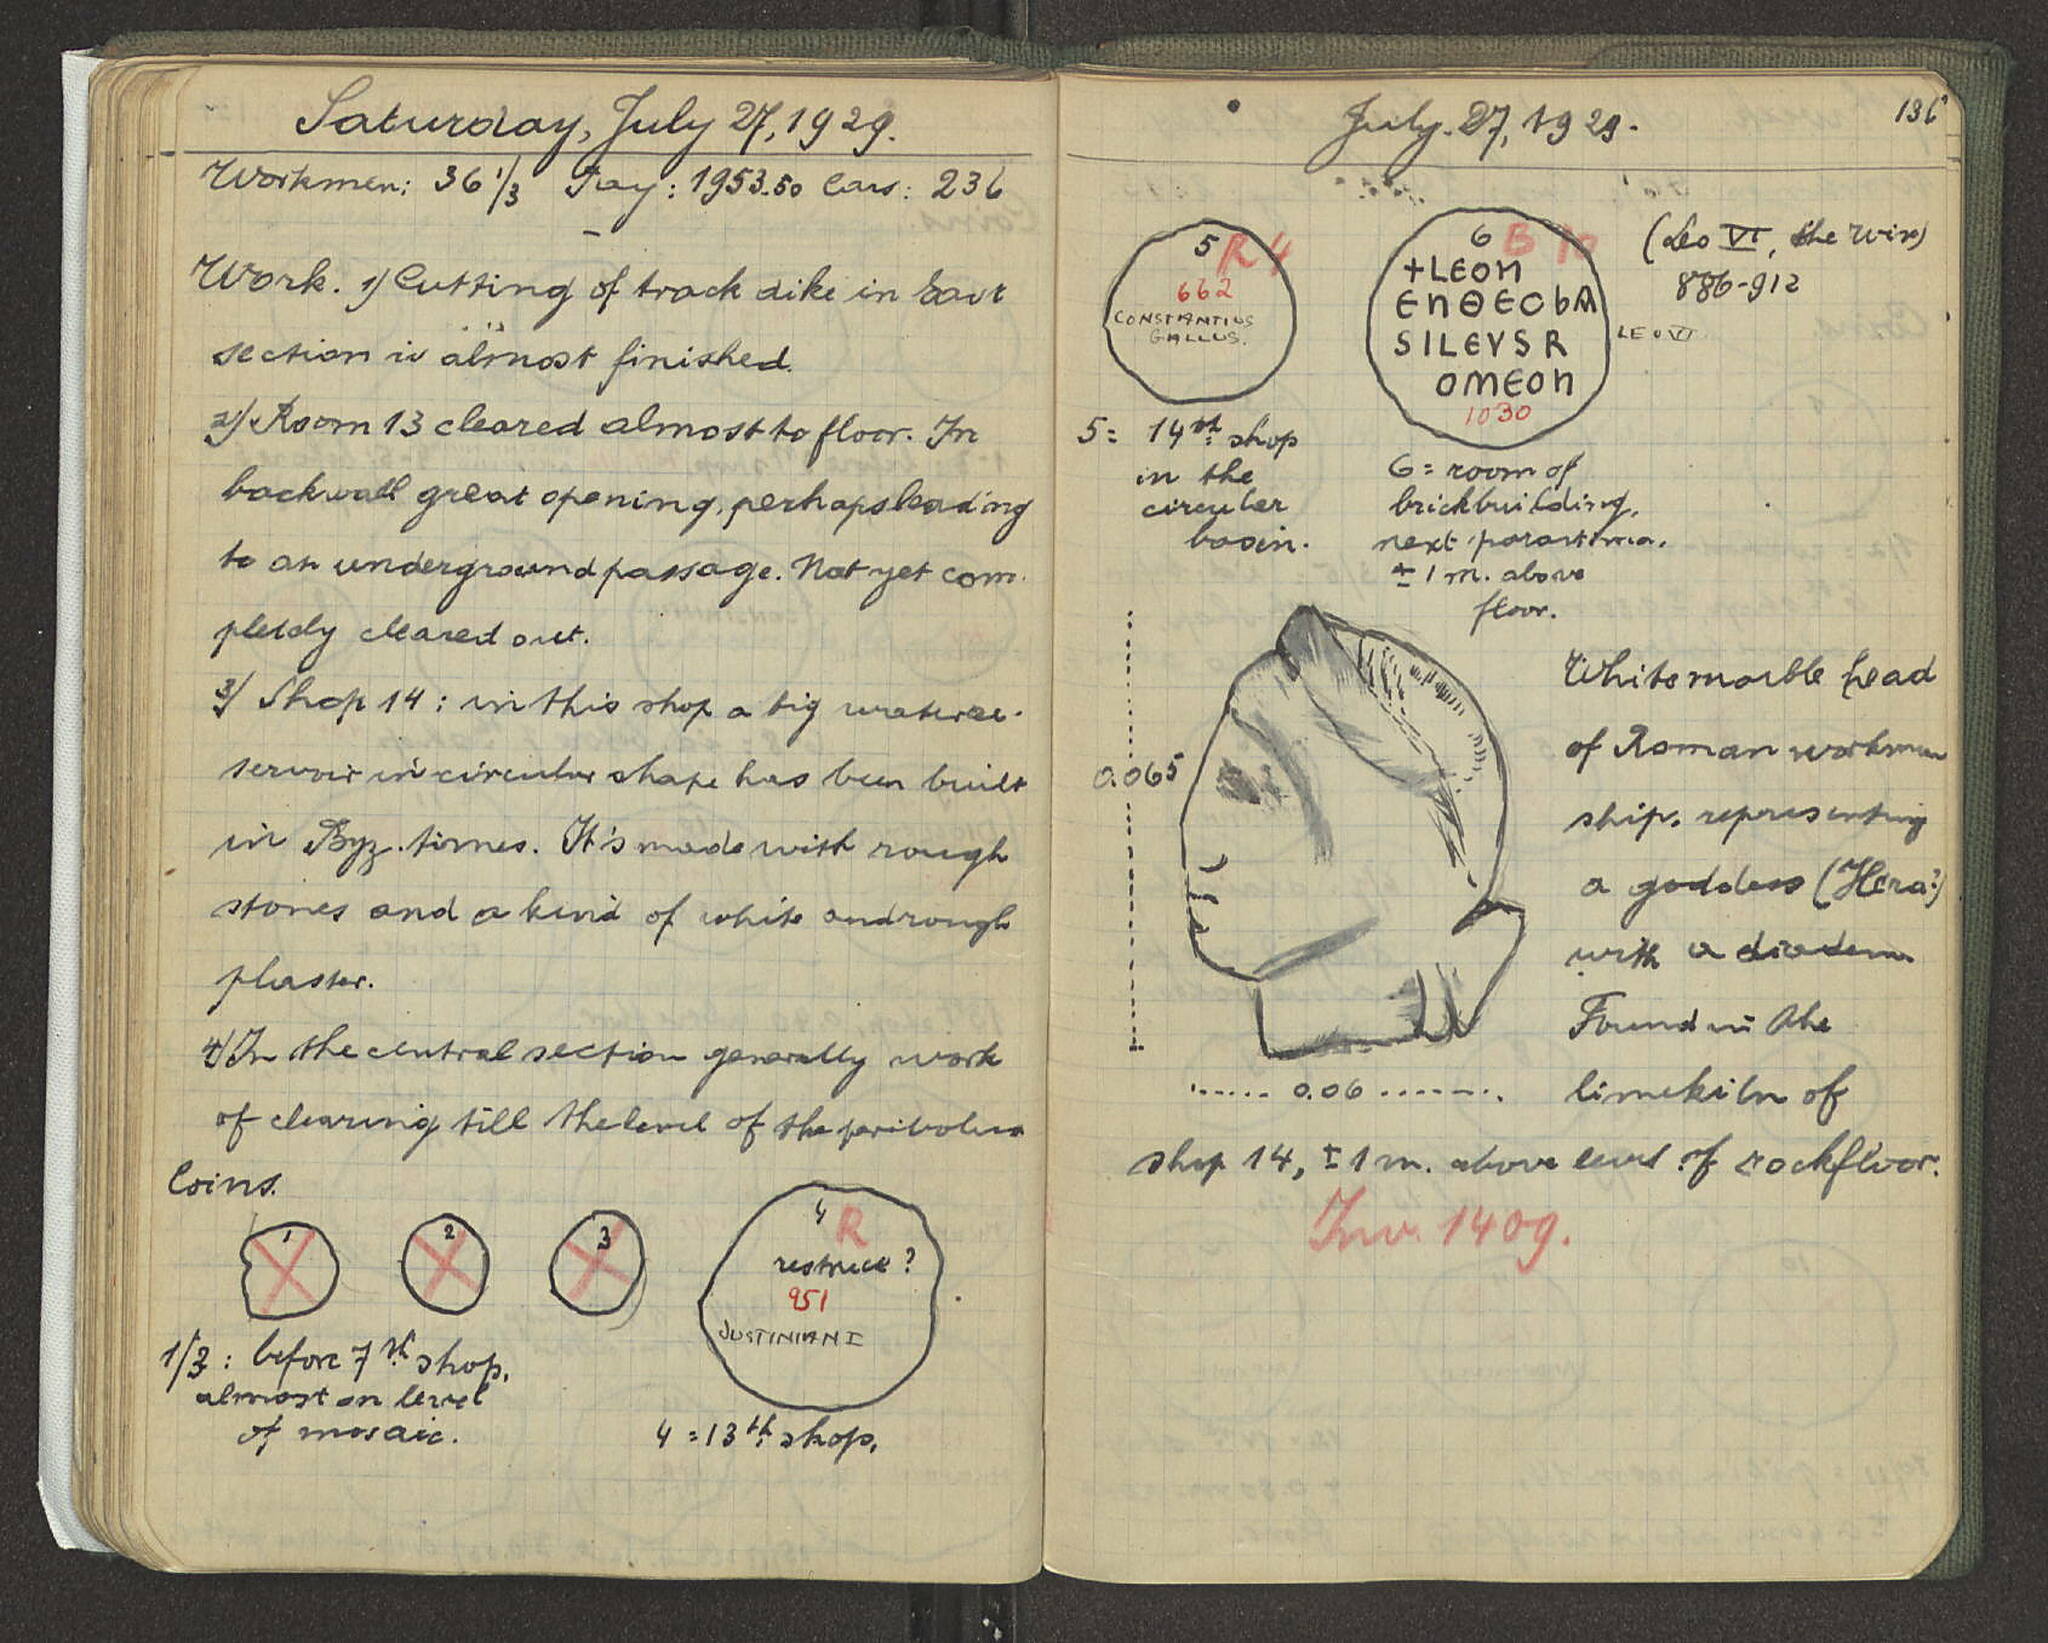 Saturday, July 27, 1929.
Workmen: 36 1/3 Pay: 1953.50 Cars: 236
Work. 1) Cutting of track dike in East
section is almost finished.
2) Room 13 cleared almost to floor. In
backwall great opening, perhaps leading
to an underground passage. Not yet com-
pletely cleared out.
3) Shop 14: in this shop a big waterre-
servoir in circular shape has been built
in Byz. times. It's made with rough
stones and a kind of white and rough
plaster.
4) In the central section generally work
of clearing till the level of the peribolus
Coins.
1
2
3
4 R
restruck?
951
JUSTINIAN I
1/3: before 7th shop,
almost on level
of mosaic.
4 = 13th shop.
July. 27, 1929.
136
5 R 4
662
CONSTANTIUS
GALLUS.
6 B 10
+LEOn
EnΘEObA
SILEVSR
OMEOn
1030
(Leo VI, the Wise)
886-912
LEO VI
5 = 14th shop
in the
circular
basin.
6 = room of
brickbuilding,
next parastima.
± 1 m. above
floor.
0.065
0.06
White marble head
of Roman workman
ship. representing
a goddess (Hera?)
with a diadem
Found in the
limekiln of
shop 14, ± 1 m. above level of rockfloor.
Inv. 1409.